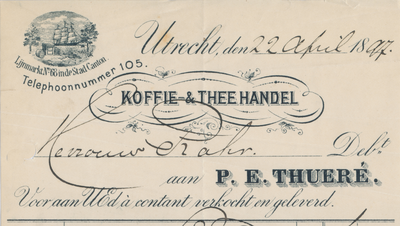 Utrecht, den 22 April 1897.
Lijnmarkt, No. 66 in de Stad Canton
Telephoonnummer 105.
KOFFIE- & THEEHANDEL
Debt.
aan P. E. THUERÉ.
Voor aan UEd à contant verkocht en geleverd.